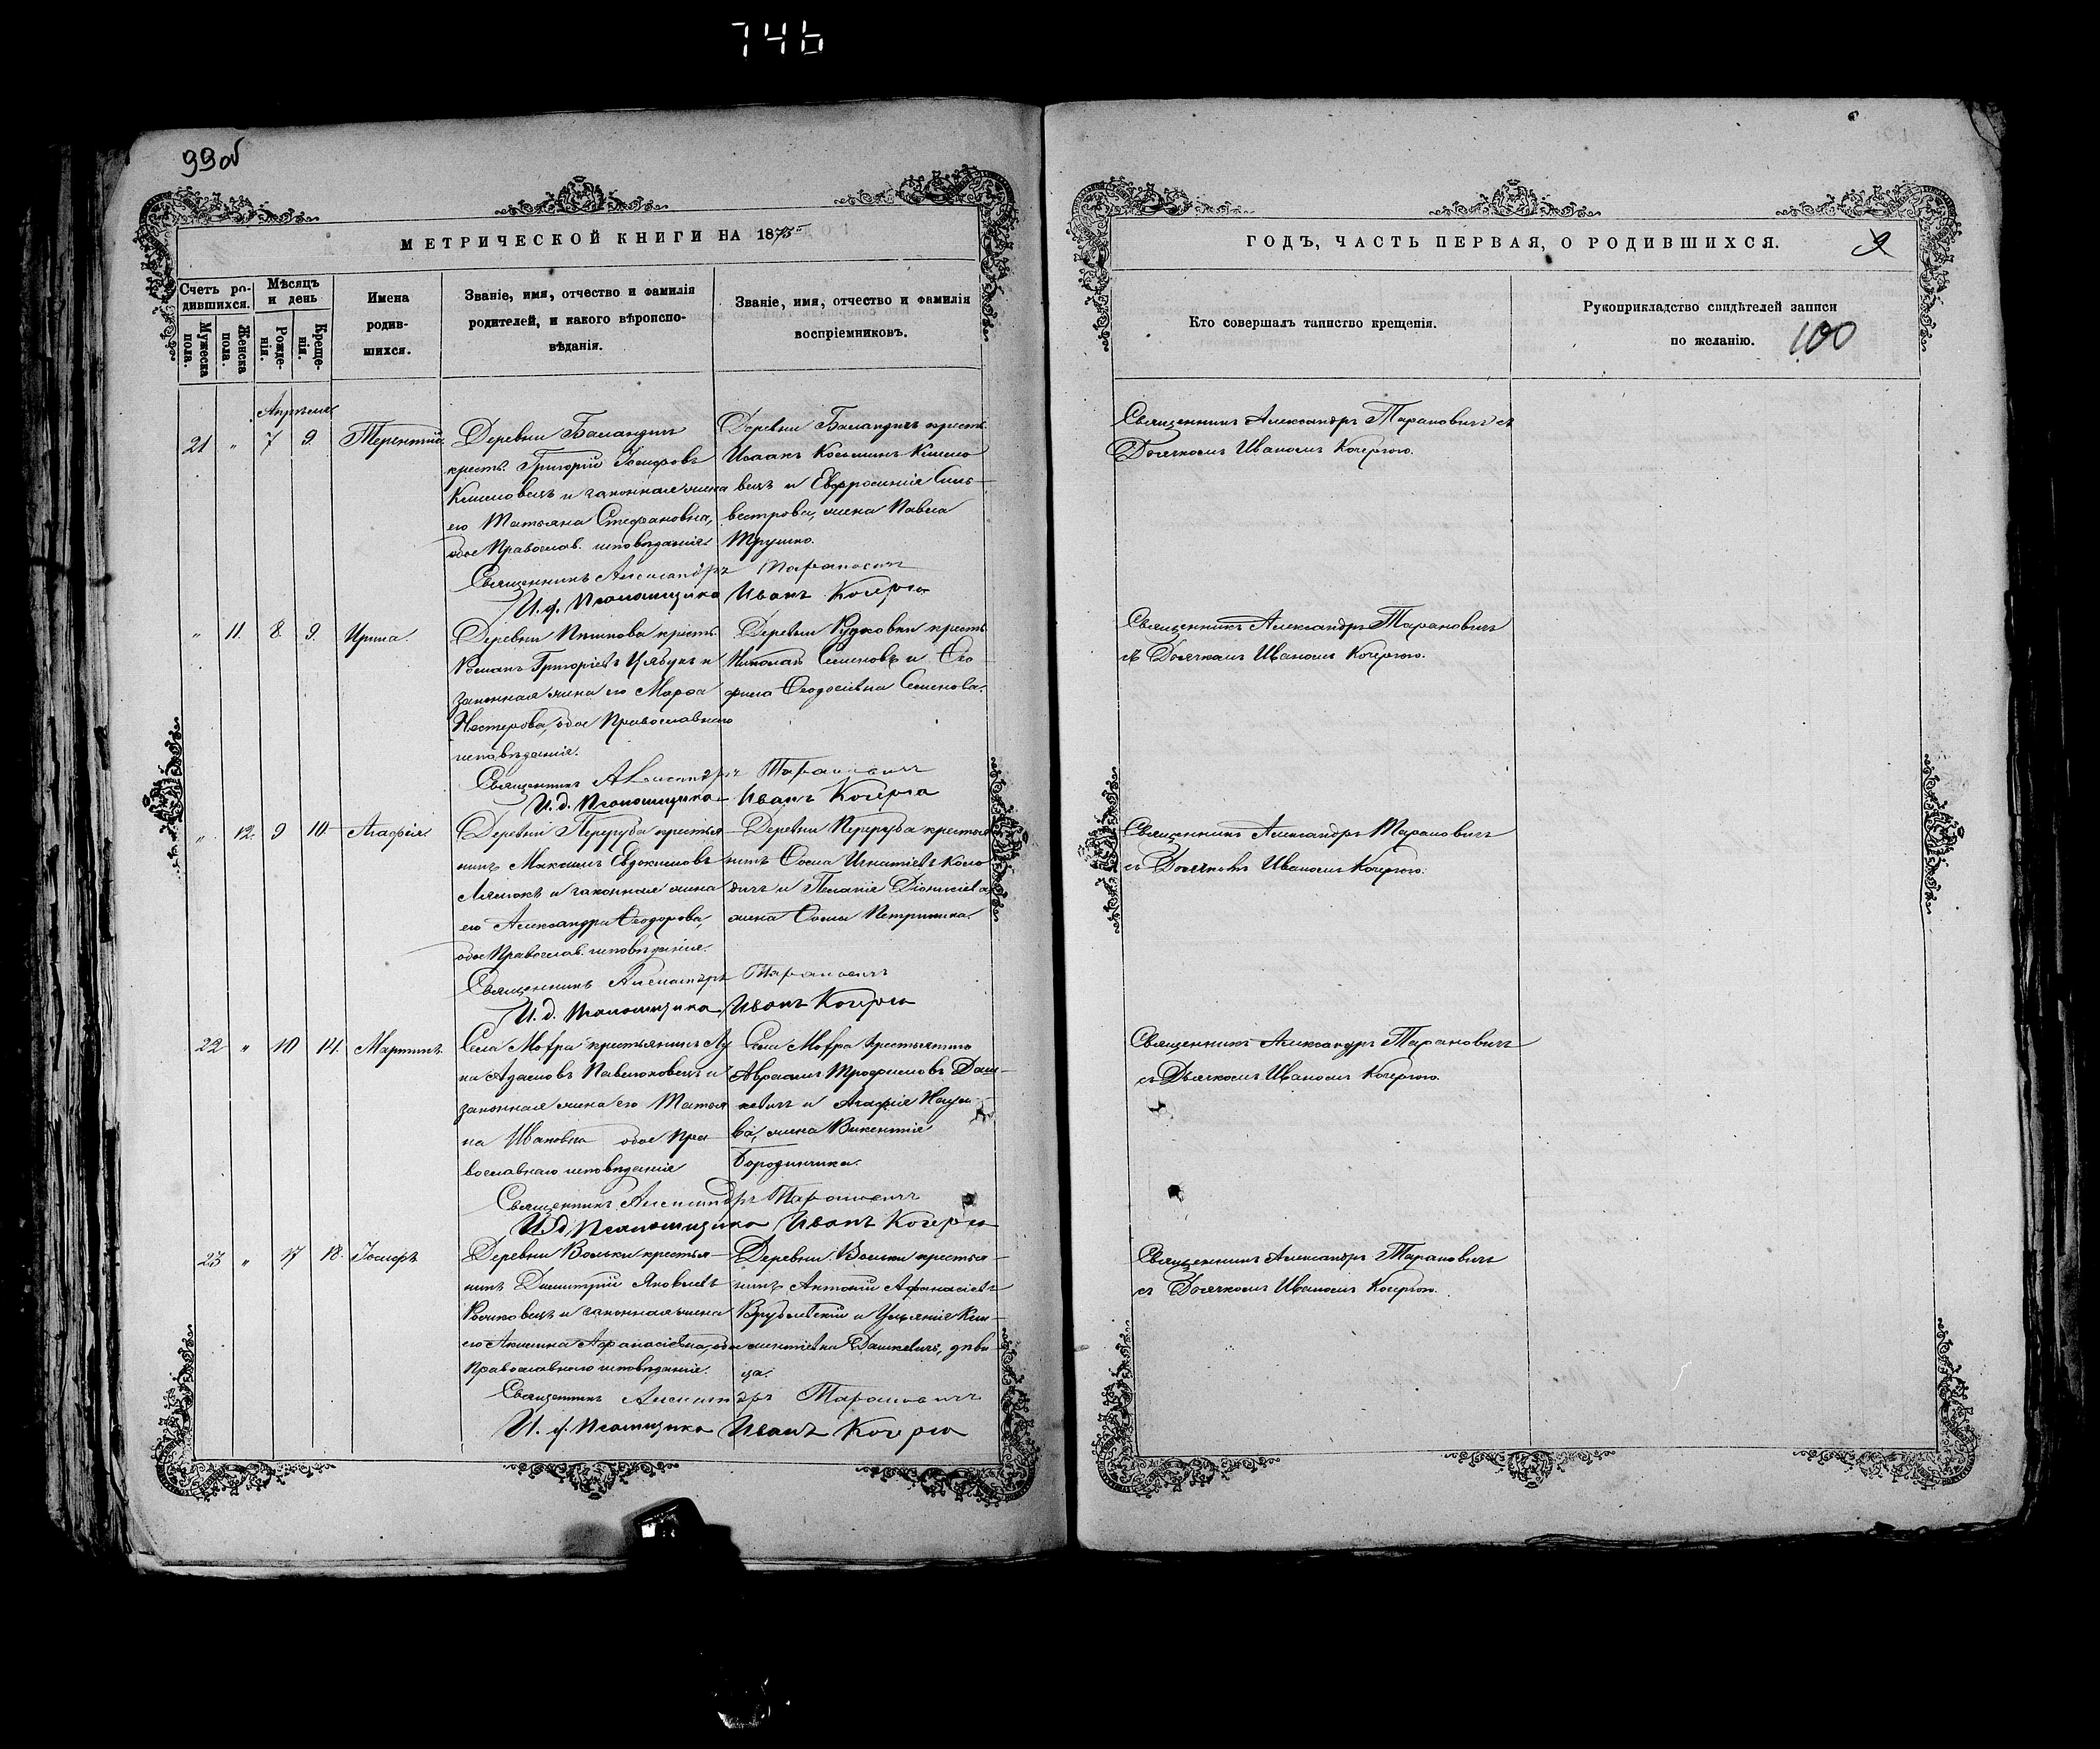 746
99об
МЕТРИЧЕСКОЙ КНИГИ НА 1875
Счетъ ро-
дившихся.
Мужеска пола.
Женска пола.
Мѣсяцъ
и день
Рожде-
нія.
Креще-
нія.
Имена
родив-
шихся.
Званіе, имя, отчество и фамилія
родителей, и какого вѣроиспо-
вѣданія.
Званіе, имя, отчество и фамилія
воспріемниковъ.
Апрѣль
21 " 7 9 Терентій
Деревни Баландичъ
крест. Григорій Іосифовъ
и законная жена
его Татьяна Стефановна,
обое Православ. исповѣданія
Деревни Баландичъ крест.
Исаакъ Косьминъ
вецъ и Евфросинія Силь-
вестрова, жена Павла
Трушко.
Священникъ Александръ Таранович
И. д. Псаломщика Иванъ Кочерга
" 11. 8. 9. Ирина.
Деревни крест.
Романъ Григоріевъ и
законная жена его Марѳа
Нестерова, обое Православнаго
исповѣданія.
Деревни Рудковки крест.
Николай Семеновъ и Ѳео-
фила Ѳеодосіевна Семенова.
Священникъ Александръ Тарановичъ
И. д. Псаломщика Иванъ Кочерга
" 12. 9 10 Агафія
Деревни Переруба крестья-
нинъ Максимъ Евдокимовъ
и законная жена
его Александра Ѳеодорова,
обое Православ. исповѣданія.
Деревни Переруба крестья
нинъ Ѳома Игнатіевъ Коло
дичъ и Пелагія Діонисіева
жена Ѳомы Петришика.
Священникъ Александръ Тарановичъ
И. д. Псаломщика Иванъ Кочерга
22 " 10 14. Мартинъ
Села Мотра крестьянинъ Лу
ка Адамовъ Павлюковецъ и
законная жена его Татья
на Ивановна обое Пра-
вославнаго исповѣданія
Села Мотра крестьянинъ
Авраамъ Трофимовъ Даш-
кевичъ и Агафія Наумо-
ва, жена Викентія
Бородинчика.
Священникъ Александръ Тарановичъ
И. д. Псаломщика Иванъ Кочерга
23 " 17 18. Іосифъ
Деревни Вольки крестья-
нинъ Димитрій Яковлевъ
и законная жена
его Акилина Афанасіевна, обое
Православнаго исповѣданія.
Деревни Вольки крестья-
нинъ Антоній Афанасіевъ
Врублевскій и Ульянія Кли-
ментіевна Дашкевичъ, дѣви-
ца.
Священникъ Александръ Тарановичъ
И. д. Псаломщика Иванъ Кочерга
ГОДЪ, ЧАСТЬ ПЕРВАЯ, О РОДИВШИХСЯ.
Кто совершалъ таинство крещенія.
Рукоприкладство свидѣтелей записи
по желанію.
100
Священникъ Александръ Тарановичъ съ
Дьячкомъ Иваномъ Кочергою.
Священникъ Александръ Тарановичъ
съ Дьячкомъ Иваномъ Кочергою.
Священникъ Александръ Тарановичъ
съ Дьячкомъ Иваномъ Кочергою.
Священникъ Александръ Тарановичъ
съ Дьячкомъ Иваномъ Кочергою.
Священникъ Александръ Тарановичъ
съ Дьячкомъ Иваномъ Кочергою.